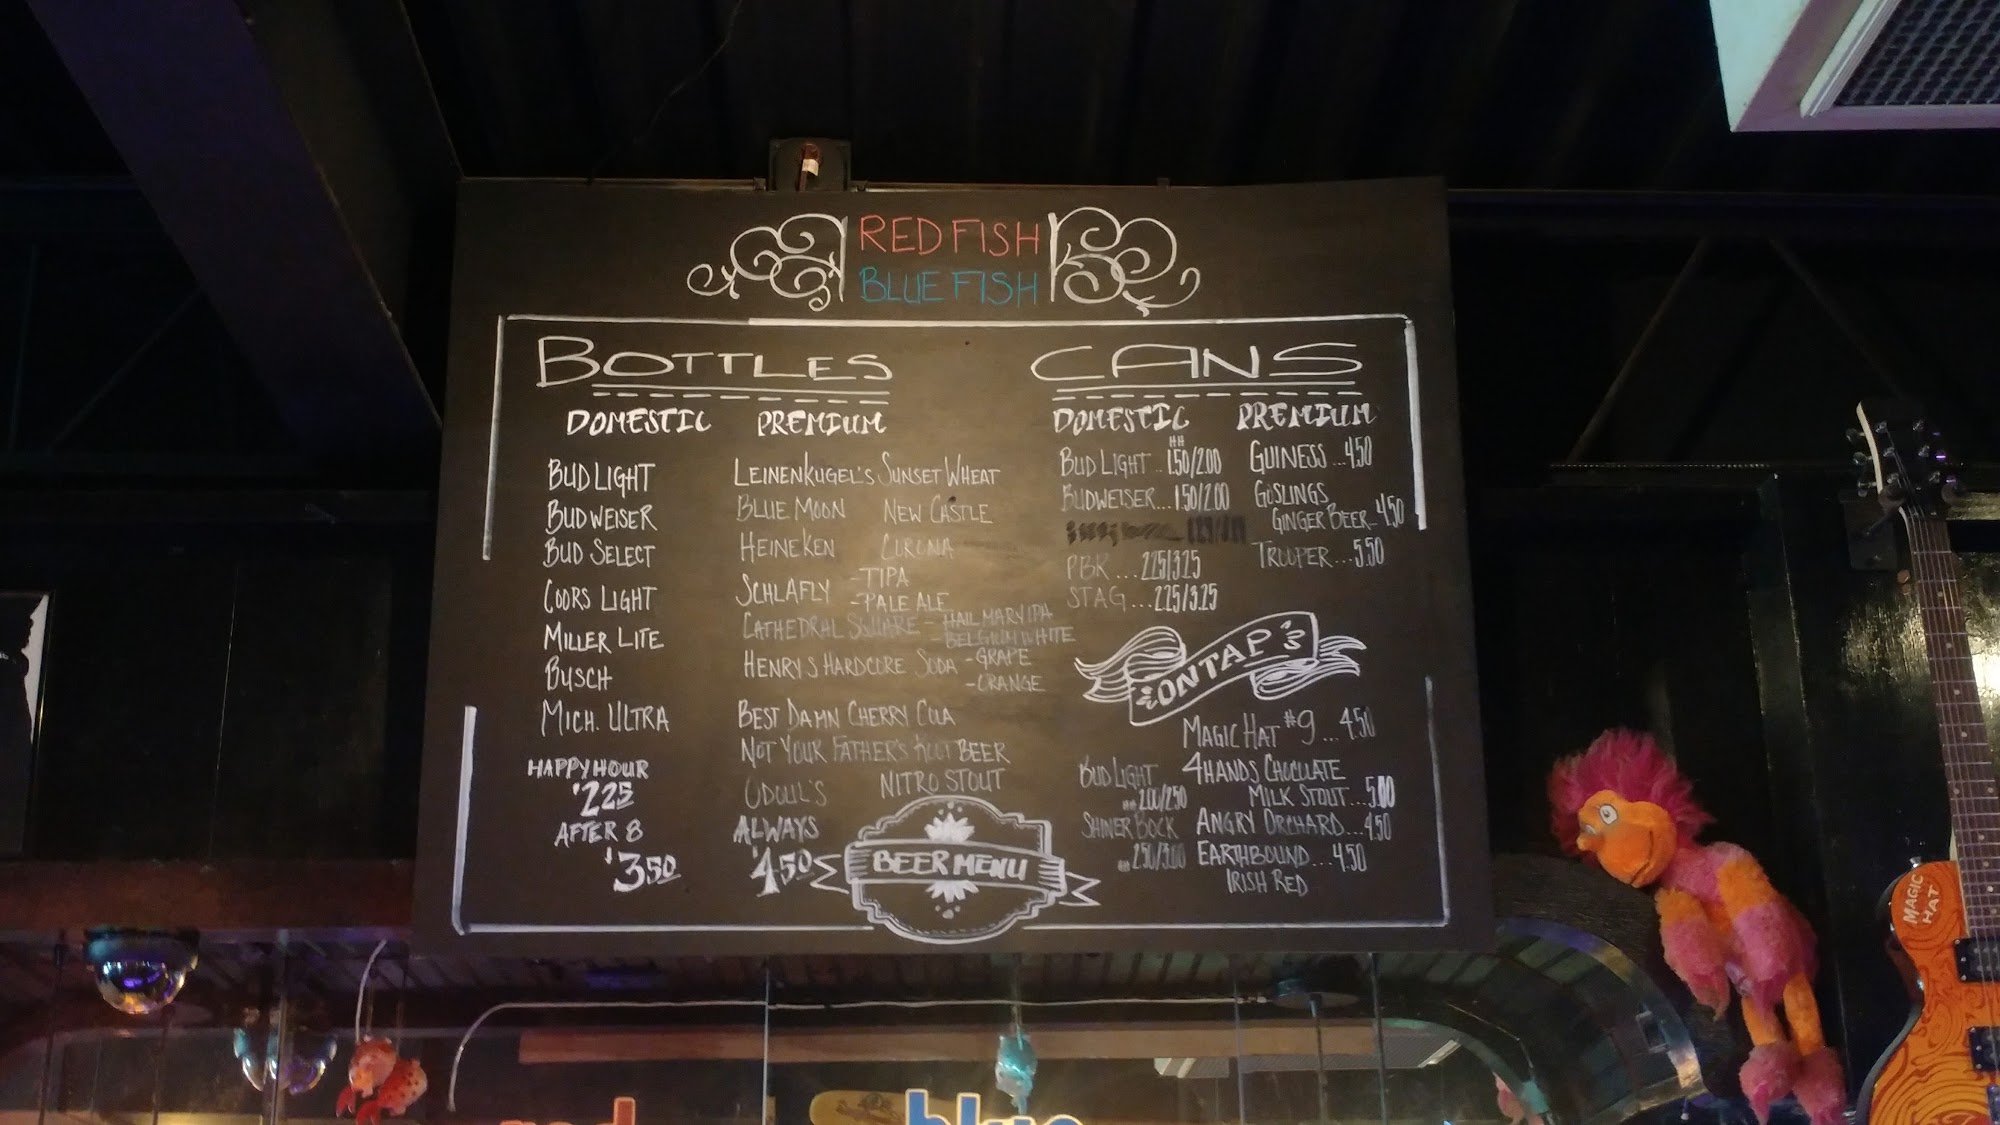 RED FISH
BLUE FISH
BOTTLES
DOMESTIC
BUD LIGHT
BUDWEISER
BUD SELECT
COORS LIGHT
MILLER LITE
BUSCH
MICH. ULTRA
HAPPY HOUR
$2.25
AFTER 8
$3.50
PREMIUM
LEINENKUGEL'S SUNSET WHEAT
BLUE MOON NEW CASTLE
HEINEKEN CORONA
SCHLAFLY -TIPA
-PALE ALE
CATHEDRAL SQUARE - HAIL MARY IPA
- BELGIUM WHITE
HENRY'S HARDCORE SODA -GRAPE
-ORANGE
BEST DAMN CHERRY COLA
NOT YOUR FATHER'S ROOT BEER
ODOUL'S NITRO STOUT
ALWAYS
$4.50
BEER MENU
CANS
DOMESTIC
HH
BUD LIGHT..1.50/2.00
BUDWEISER...1.50/2.00
PBR...2.25/3.25
STAG...2.25/3.25
PREMIUM
GUINESS...4.50
GOSLINGS
GINGER BEER..4.50
TROOPER...5.50
ON TAP'S
BUD LIGHT
HH 2.00/2.50
SHINER BOCK
HH 2.50/3.00
MAGIC HAT #9...4.50
4HANDS CHOCOLATE
MILK STOUT...5.00
ANGRY ORCHARD...4.50
EARTHBOUND...4.50
IRISH RED
MAGIC
HAT
red
blue